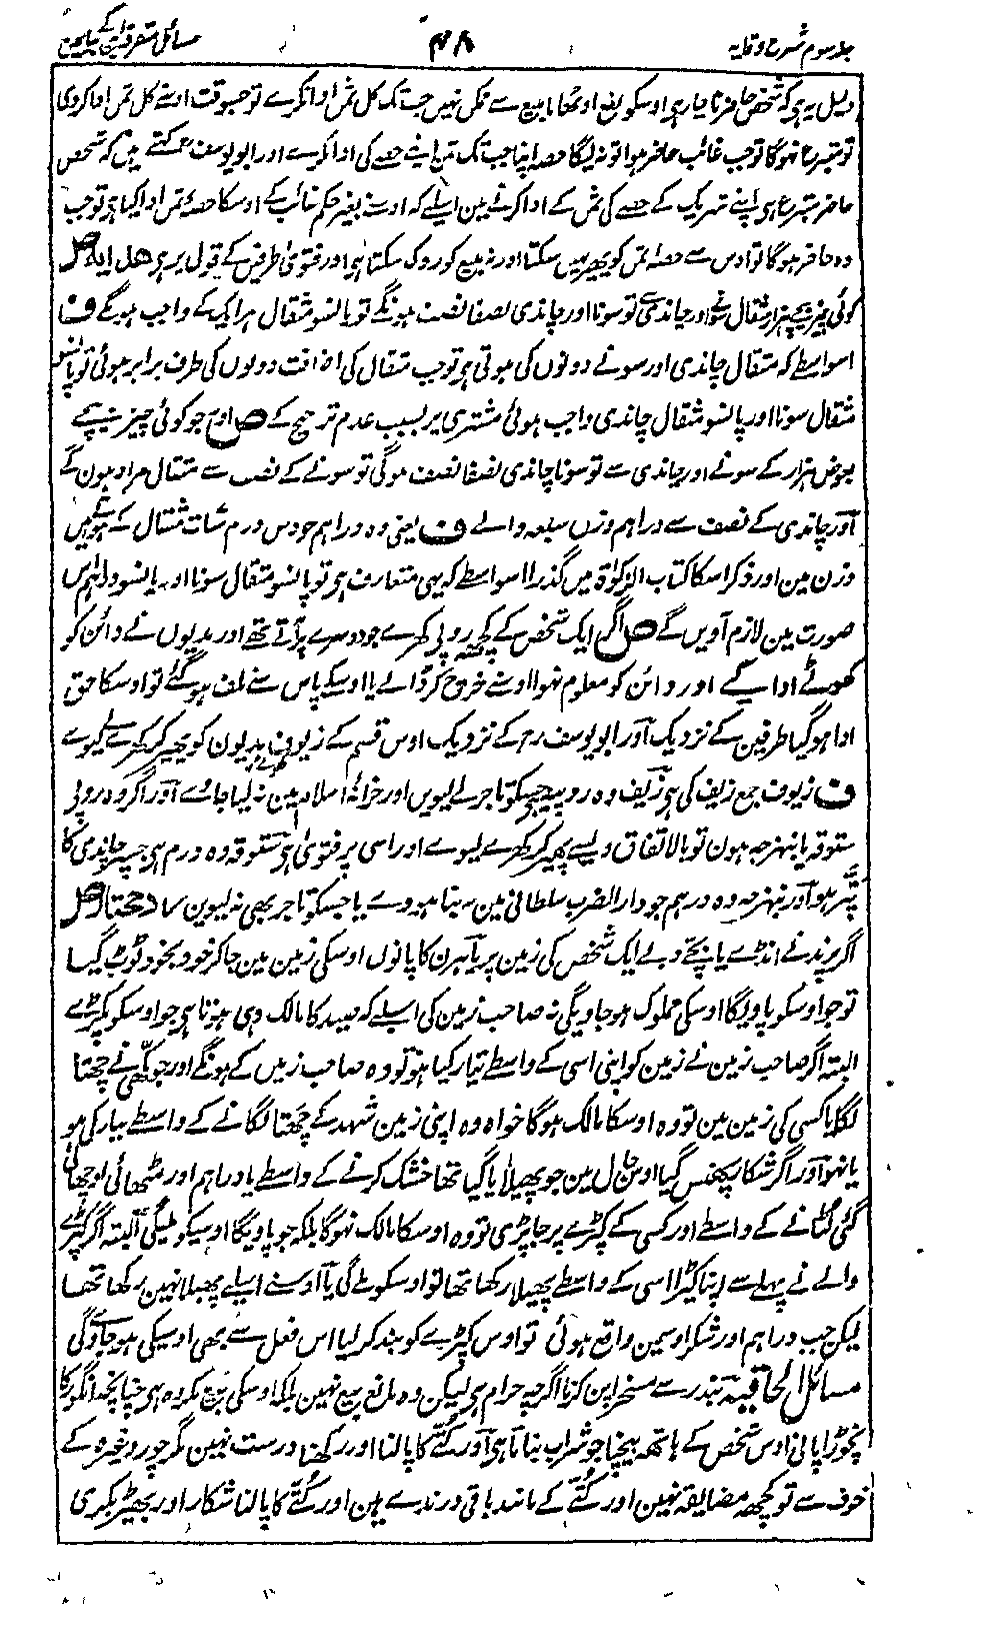 جلد سوم شرح وقایہ ۴۸ مسائل متفرقہ بیع کے بیان مین
دلیل یہ ہی کہ شخص حاضر ناچار ہی اوسکو نفع اوٹھانا مبیع سے ممکن نہیں جب تک کل ثمن ادا نکرے تو جسوقت اوسنے کل ثمن ادا کر دی
تو متبرع نہوگا تو جب غائب حاضر ہوا تو نہ لیگا حصہ اپنا جب تک ثمن اپنے حصے کی ادا نکرے اور ابو یوسف رح کہتے ہین کہ شخص
حاضر متبرع ہی اپنے شریک کے حصے کی ثمن کے ادا کرنے مین اسلیے کہ اوسنے بغیر حکم غائب کے اوسکا حصۂ ثمن ادا کیا ہی تو جب
وہ حاضر ہوگا تو اوس سے حصۂ ثمن کو پھیر نہیں سکتا اور نہ مبیع کو روک سکتا ہی اور فتویٰ طرفین کے قول پر ہی ھدایہ ص
کوئی چیز بیچے ہزار مثقال سونے اور چاندی سے تو سونا اور چاندی نصفا نصف ہونگے تو پانسو مثقال ہر ایک کے واجب ہونگے ف
اسواسطے کہ مثقال چاندی اور سونے دونوں کی ہوتی ہی تو جب مثقال کی اضافت دونوں کی طرف برابر ہوئی تو پانسو
مثقال سونا اور پانسو مثقال چاندی واجب ہوئی مشتری پر بسبب عدم ترجیح کے ص اور جو کوئی چیز بیچے
بعوض ہزار کے سونے اور چاندی سے تو سونا چاندی نصفا نصف ہوگی تو سونے کے نصف سے مثقال مراد ہون گے
اور چاندی کے نصف سے دراہم وزن سبعہ والے ف یعنی وہ دراہم جو دس درم سات مثقال کے ہوتے ہیں
وزن مین اور ذکر اسکا کتاب الزکوٰة میں گذرا اسواسطے کہ یہی متعارف ہی تو پانسو مثقال سونا اور پانسو دراہم اس
صورت مین لازم آویں گے ص اگر ایک شخص کے کچھ روپی کھرے جو دوسرے پر آتے تھے اور مدیوں نے دائن کو
کھوٹے ادا کیے اور دائن کو معلوم نہوا اوسنے خروج کر ڈالے یا اوسکے پاس سے تلف ہو گئے تو اوسکا حق
ادا ہو گیا طرفین کے نزدیک اور ابو یوسف رح کے نزدیک اوس قسم کے زیوف مدیون کو پھیر کر کھرے لیوے
ف زیوف جمع زیف کی ہی زیف وہ روپیہ جسکو تاجر لے لیویں اور خزانۂ اسلام مین نہ لیا جاوے اور اگر وہ روپی
ستوقہ یا نبہرجہ ہون تو بالاتفاق ویسے پھیر کر کھرے لیوے اور اسی پر فتویٰ ہی ستوقہ وہ درم ہی جسپر چاندی کا
پتر ہو اور نبہرجہ وہ درہم جو دار الضرب سلطانی مین نہ بنا ہووے یا جسکو تاجر بھی نہ لیوین در مختار ص
اگر پرند نے انڈے یا بچے دیے ایک شخص کی زمین پر یا ہرن کا پانوں اوسکی زمین مین جاکر خود بخود ٹوٹ گیا
تو جو اوسکو پاویگا اوسکی مملوک ہوجاویگی نہ صاحب زمین کی اسلیے کہ صید کا مالک وہی ہوتا ہی جو اوسکو پکڑے
البتہ اگر صاحب زمین نے زمین کو اپنی اسی کے واسطے تیار کیا ہو تو وہ صاحب زمین کے ہونگے اور جو مکھی نے چھتا
لگایا کسی کی زمین مین تو وہ اوسکا مالک ہوگا خواہ وہ اپنی زمین شہد کے چھتا لگانے کے واسطے تیار کی ہو
یا نہو اور اگر شکار پھنس گیا اوس جال مین جو پھیلایا گیا تھا خشک کرنے کے واسطے یا دراہم اور مٹھائی اوچھالی
گئی لٹانے کے واسطے اور کسی کے کپڑے پر جا پڑی تو وہ اوسکا مالک نہوگا بلکہ جو پاویگا اوسیکو ملیگی البتہ اگر کپڑے
والے نے پہلے سے اپنا کپڑا اسی کے واسطے پھیلا رکھا تھا تو اوسکو ملے گی یا اوسنے اسلیے پھیلا نہین رکھا تھا
لیکن جب دراہم اور شکر اوسمین واقع ہوئی تو اوس کپڑے کو بند کر لیا اس فعل سے بھی اوسیکی ہو جاویگی
مسائل الحاقیہ بندر سے مسخراپن کرنا اگرچہ حرام ہی لیکن وہ مانع بیع نہین بلکہ اوسکی بیع مکروہ ہی چنانچہ انگور کا
نچوڑا پانی اوس شخص کے ہاتھ بیچنا جو شراب بناتا ہی اور کتے کا پالنا اور رکھنا درست نہین مگر چور وغیرہ کے
خوف سے تو کچھ مضایقہ نہین اور کتے کے مانند باقی درندے ہین اور کتے کا پالنا شکار اور بھیڑ بکری